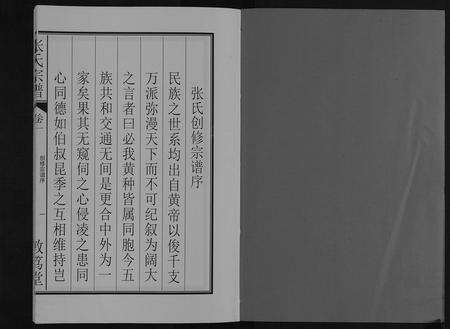 张氏创修宗谱序
民族之世系均出自黄帝以俊千支
万派弥漫天下而不可纪叙为阔大
之言者曰必我黄种皆属同胞今五
族共和交通无间是更合中外为一
家矣果其无窥伺之心侵凌之患同
心同德如伯叔昆季之互相维持岂
张氏宗谱
卷一
创修宗谱序
一
敦笃堂